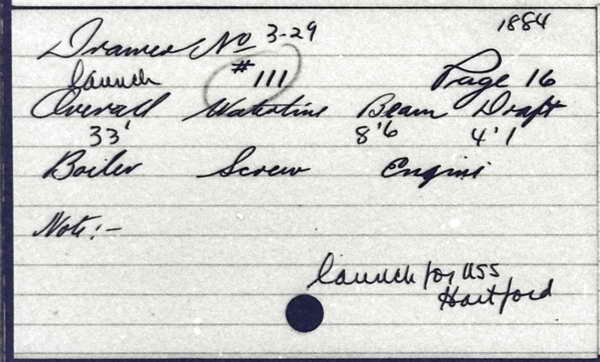 1884
Drawer No 3-29
launch #111 Page 16
Overall Waterline Beam Draft
33' 8'6 4'1
Boiler Screw Engine
Note:-
launch for USS
Hartford